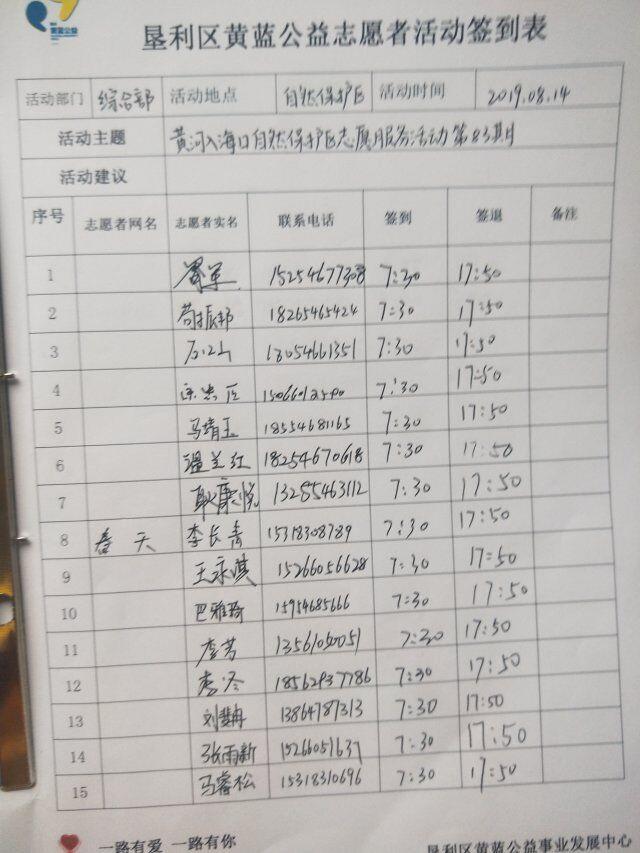 黄蓝公益
垦利区黄蓝公益志愿者活动签到表
活动部门 综合部 活动地点 自然保护区 活动时间 2019.08.14
活动主题 黄河入海口自然保护区志愿服务活动第83期
活动建议
序号 志愿者网名 志愿者实名 联系电话 签到 签退 备注
1 15254677308 7:30 17:50
2 苟振邦 18265465424 7:30 17:50
3 石江山 18054661351 7:30 17:50
4 7:30 17:50
5 马靖玉 18554681165 7:30 17:50
6 温兰红 18254670618 7:30 17:50
7 耿康悦 13285463112 7:30 17:50
8 春天 李长青 15318308789 7:30 17:50
9 王永淇 15266056628 7:30 17:50
10 巴雅琦 15954685666 7:30 17:50
11 李芳 13561050051 7:30 17:50
12 李冬 18562937786 7:30 17:50
13 13864787313 7:30 17:50
14 张雨新 15266051637 7:30 17:50
15 马睿松 15318310696 7:30 17:50
一路有爱 一路有你 垦利区黄蓝公益事业发展中心